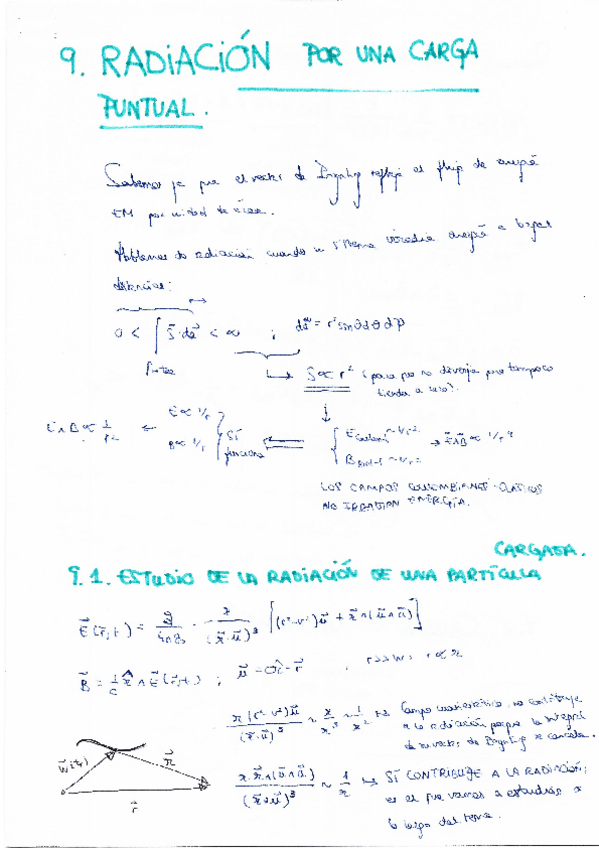 9. RADiACiÓN POR UNA CARGA
PUNTUAL.
Sabemos ya que el vector de Poynting refleja el flujo de energía
EM por unidad de área.
Hablamos de radiación cuando un sistema irradia energía a largas
distancias:
0 < ∫ S⃗·da⃗ < ∞ ; da⃗ = r² sinθ dθ dφ
finitea
S ∝ r² (para que no diverja pero tampoco
tienda a cero).
E∧B ∝ 1/r² ← E ∝ 1/r B ∝ 1/r SÍ funciona
E ~ 1/r² B ~ 1/r² → E⃗∧B⃗ ∝ 1/r⁴
LOS CAMPOS
NO IRRADIAN ENERGÍA.
9.1. ESTUDIO DE LA RADIACIÓN DE UNA PARTÍCULA
CARGADA.
E⃗(r⃗,t) = q/4πε₀ · r/(r⃗·u⃗)³ [(c²-v²)u⃗ + r⃗∧(u⃗∧a⃗)]
B⃗ = 1/c r̂∧E⃗(r⃗,t) ;
r(c²-v²)u⃗/(r⃗·u⃗)³ ~ r/r³ ~ 1/r² → Campo no contribuye
a la radiación porque la integral
de su vector de Poynting se cancela.
r·r⃗∧(u⃗∧a⃗)/(r⃗·u⃗)³ ~ 1/r → SÍ CONTRIBUYE A LA RADIACIÓN;
es el que vamos a estudiar a
lo largo del tema.
w⃗(tr)
r⃗
r⃗